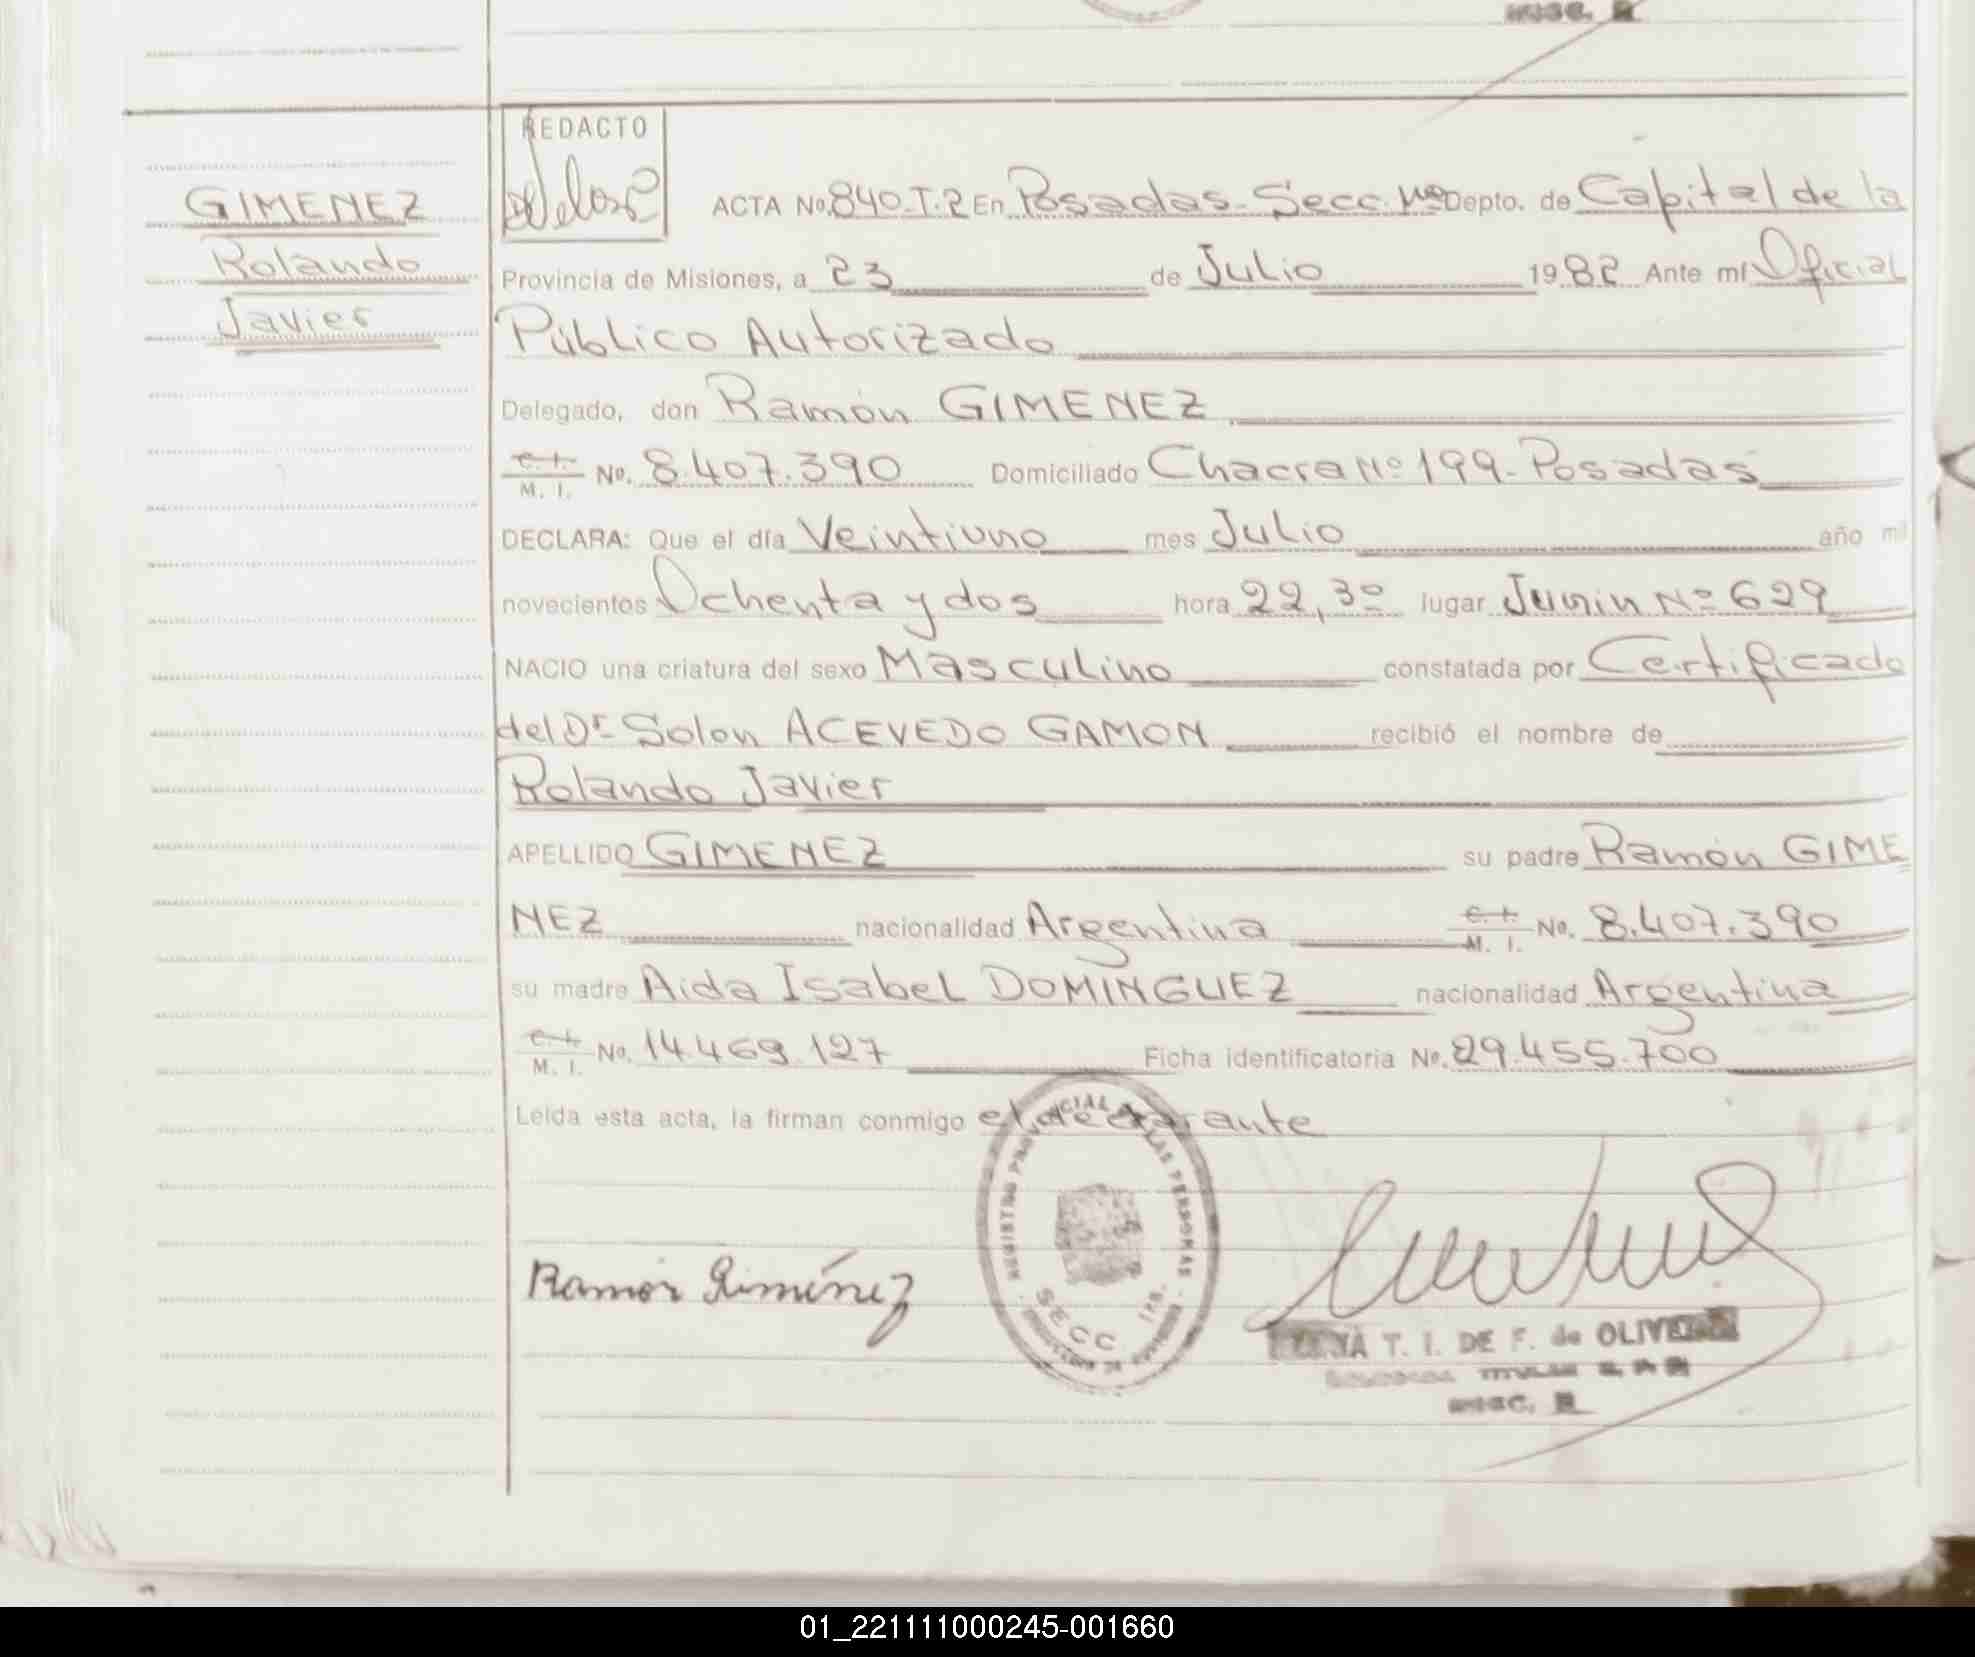 GIMENEZ
Rolando
Javier
REDACTO
ACTA No. 840-T.2 En Posadas-Secc. 1ra Depto. de Capital de la
Provincia de Misiones, a 23 de Julio 1982 Ante mí Oficial
Público Autorizado
Delegado, don Ramón GIMENEZ
C. I. M. I. No. 8.407.390 Domiciliado Chacra Nº 199-Posadas
DECLARA: Que el día Veintiuno mes Julio año mil
novecientos Ochenta y dos hora 22,30 lugar Junin Nº 629
NACIO una criatura del sexo Masculino constatada por Certificado
del Dr Solon ACEVEDO GAMON recibió el nombre de
Rolando Javier
APELLIDO GIMENEZ su padre Ramón GIME
NEZ nacionalidad Argentina C. I. M. I. No. 8.407.390
su madre Aida Isabel DOMINGUEZ nacionalidad Argentina
C. I. M. I. No. 14.469.127 Ficha identificatoria No. 29.455.700
Leída esta acta, la firman conmigo el declarante
REGISTRO PROVINCIAL DE LAS PERSONAS
SECC. 1ra.
Ramón Giménez
T. I. DE F. de OLIVERA
01_221111000245-001660